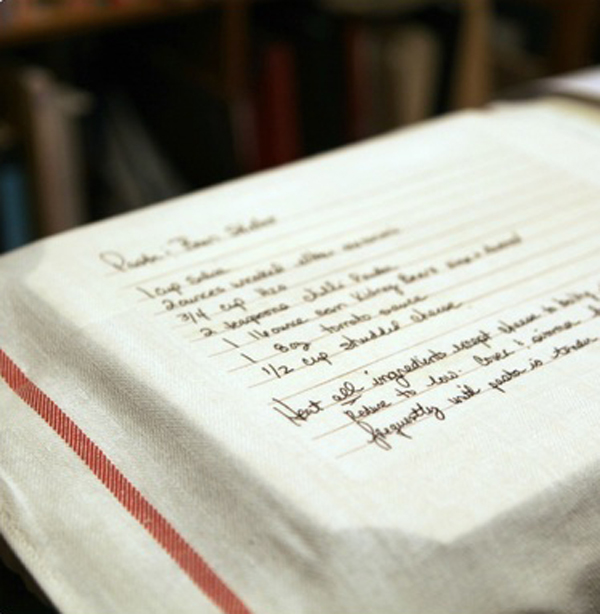 Pasta - Bean
1 cup salsa
2 ounces uncooked
3/4 cup H2O
2 teaspoons chili
1 16 ounce can kidney beans
1 8oz tomato sauce
1/2 cup shredded cheese
Heat all ingredients except cheese to boiling
Reduce to low. Cover & simmer
frequently until pasta is tender